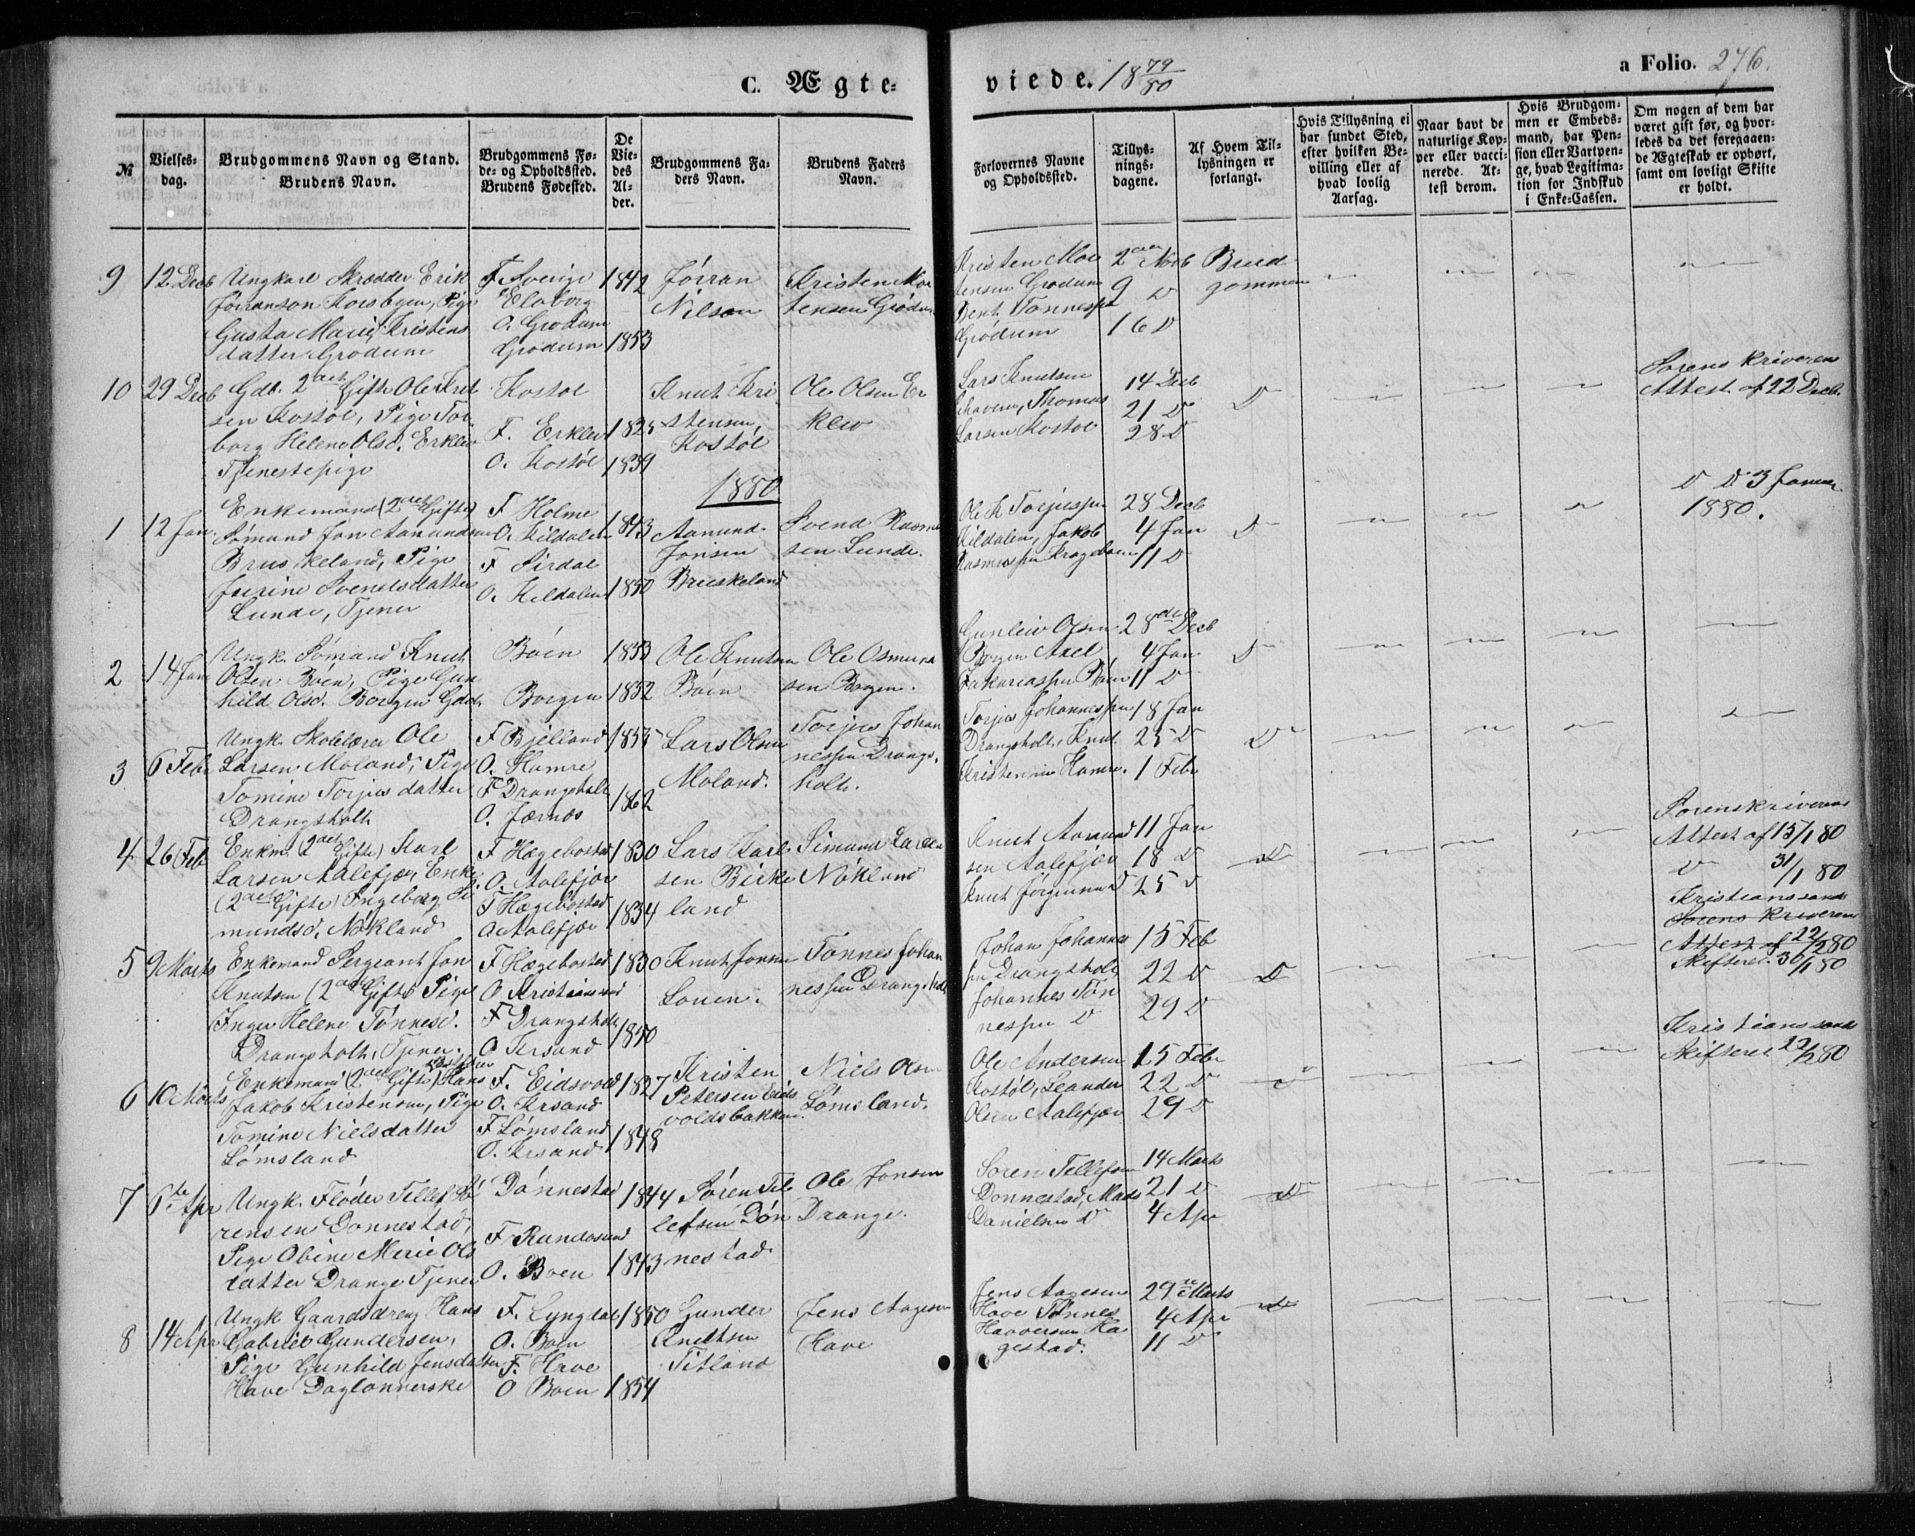 C. Ægte-
viede. 18 79/80
a Folio. 276.
№
Vielses-
dag.
Brudgommens Navn og Stand.
Brudens Navn.
Brudgommens Fø-
de- og Opholdssted.
Brudens Fødested.
De
Vie-
des
Al-
der.
Brudgommens Fa-
ders Navn.
Brudens Faders
Navn.
Forlovernes Navne
og Opholdssted.
Tillys-
nings-
dagene.
Af Hvem Til-
lysningen er
forlangt.
Hvis Tillysning ei
har fundet Sted,
efter hvilken Be-
villing eller af
hvad lovlig
Aarsag.
Naar havt de
naturlige Kop-
per eller vacci-
nerede. At-
test derom.
Hvis Brudgom-
men er Embeds-
mand, har Pen-
sion eller Vartpen-
ge, hvad Legitima-
tion for Indskud
i Enke-Cassen.
Om nogen af dem har
været gift før, og hvor-
ledes da det foregaaen-
de Ægteskab er ophørt,
samt om lovligt Skifte
er holdt.
9
12 Decb
Ungkarl Skrædder Erik
Jørranson Korsbyen, Pige
Gusta Marie Kristens
datter Grødum
F. Sverige
Elvborg
O. Grødum
Grødum
1842
1853
Jørran
Nilson
Kristen Mor
tensen Grødum
Kristen Mor
tensen Grødum
Bent Tønnesen
Grødum
2den Novb
9 D
16 D
Brud
gommen
10
29 Decb
Gdb. 2det Gifte Ole Knut
sen Kostøl, Pige Tor
borg Helene Olsd. Erklev
Tjenestepige
Kostøl
F. Erklev
O. Kostøl
1828
1839
Knut Kri
stensen,
Kostøl
Ole Olsen Er
klev
Lars Knutsen
Thomas
Larsen Kostøl
14 Decb
21 D
28 D
D
Sorenskriverens
Attest af 22 Decb.
1880
1
12 Jan.
Enkemand (2det Gifte)
Sømand Jon Aamundsen
Bruskeland, Pige
Jurine Svendsdatter
Lunde, Tjener
F Holme
O. Kildalen
F Sirdal
O. Kildalen
1843
1850
Aamund
Jonsen
Bruskeland
Svend Rasmu
sen Lunde.
Ole A Torjussen
Kildalen, Jakob
Rasmussen
28 Decb
4 Jan
11 D
D
D D 3 Januar
1880.
2
14 Jan
Ungk. Sømand Knut
Olsen Boen, Pige Gun
hild Olsd. Borgen Gdd.
Boen
Borgen
1853
1852
Ole Knutsen
Boen
Ole Osmund
sen Borgen.
Gunleiv Olsen
Borgen Axel
Zakariassen Boen
28de Decb
4 Jan
11 D
D
3
6 Febr
Ungk. Skolelærer Ole
Larsen Moland, Pige
Tomine Torjusdatter
Drangsholt
F Bjelland
O. Hamre
F Drangsholt
O. Jærnes
1862
Lars Olsen
Moland.
Torjus Johan
nessen Drangs
holt.
Torjus Johannessen
Drangsholt, Knut
Kristensen Hamre.
18 Jan
25 D
1 Febr
D
4
26 Feb
Enkm. (2det Gifte) Karl
Larsen Aalefjær, Enke
(2det Gifte) Ingeborg Si
mundsd. Nøkland
F Hægebostad
O. Aalefjær
F Hægebostad
O. Aalefjær
1830
1834
Lars Karl
sen Birke
land
Simund Larsen
Nøkland
Knut Aamund
sen Aalefjær
Knut Jørgensen D
11 Jan
18 D
25 D
D
Sorenskriverens
Attest af 15/1 80
D 31/1 80
5
9 Marts
Enkemand Sergeant Jon
Knutsen (2det Gifte) Pige
Inger Helene Tønnesd.
Drangsholt, Tjener.
F Hægebostad
O Kristianssand
F Drangsholt
O Krsand
1830
1840
Knut Jonsen
Tønnes Johan
nessen Drangsholt
Johan Johannes
sen Drangsholt
Johannes Tøn
nessen D
15 Feb
22 D
29 D
D
Kristianssand
Sorenskriveren
Attest af 22/2 80
Skifteret 30/1 80
6
10 Marts
Enkemand (2det Gifte) Hans
Jakob Kristensen, Pige
Tomine Nielsdatter
Lømsland
F. Eidsvold
O. Krsand
F Lømsland
O. Krsand
1827
1848
Kristen
Petersen Eids
voldsbakken
Niels Olsen
Lømsland.
Ole Andersen
Kostøl, Leander
Olsen Aalefjær
15 Febr
22 D
29 D
D
Kristianssand
Skifteret 23/2 80
7
6te Apr
Ungk. Fløder Tellef Sø
rensen Dønnestad,
Pige Obine Marie Ols
datter Drange Tjener
Dønnestad
F Randesund
O. Boen
1844
1843
Søren Tel
lefsen Døn
nestad
Ole Jonsen
Drange.
Søren Tellefsen
Dønnestad, Mads
Danielsen D
14 Marts
21 D
4 Apr
D
8
14 Apr
Ungk Gaardsdreng Hans
Gabriel Gundersen,
Pige Gunhild Jensdatter
Have Dagløn​nerske
F. Lyngdal
O. Boen
F. Have
O Boen
1850
1854
Gunder
Knutsen
Titland
Jens Aagesen
Have
Jens Aagesen
Have Tønnes
Haaversen Ha
gestad.
29de Marts
4 Apr
11 D
D